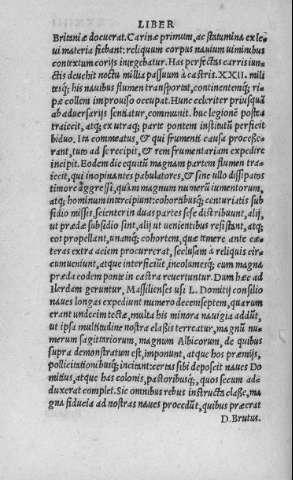 LIBER
Britaniæ docuerat. Carinæ primum, ac statumina ex le
ui materia fiebant: reliquum corpus nauium uiminibus
contextum corijs integebatur. Has perfectas carris iun
ctis deuehit noctu millia passuum à castris .XXII. mili
tesq; his nauibus flumen transportat, continentemq; ri
pæ collem improuiso occupat. Hunc celeriter priusquā
ab aduersarijs sentiatur, communit. huc legionē postea
traiecit, atq; ex utraq; parte pontem institutū perficit
biduo. Ita commeatus, & qui frumenti causa processe
rant, tuto ad se recipit, & rem frumentariam expedire
incipit. Eodem die equitū magnam partem flumen tra
iecit, qui inopinantes pabulatores, & sine ullo dissipatos
timore aggressi, quàm magnum numerū iumentorum,
atq; hominum intercipiunt: cohortibusq; centuriatis sub
sidio missis, scienter in duas partes sese distribuunt, alij,
ut prædæ subsidio sint, alij ut uenientibus resistant, atq;
eos propellant, unamq; cohortem, quæ temere ante cæ
teras extra aciem procurrerat, seclusam à reliquis cir
cunueniunt, atque interficiūt, incolumesq; cum magna
præda eodem ponte in castra reuertuntur. Dum hæc ad
Ilerdam geruntur, Massilienses usi L. Domitij consilio
naues longas expediunt numero decemseptem, quarum
erant undecim tectæ, multa his minora nauigia addūt,
ut ipsa multitudine nostra classis terreatur, magnū nu
merum sagittariorum, magnum Albicorum, de quibus
supra demonstratum est, imponunt, atque hos præmijs,
pollicitationibusq; incitant: certas sibi deposcit naues Do
mitius, atque has colonis, pastoribusq;, quos secum ad
duxerat complet. Sic omnibus rebus instructa classe, ma
gna fiducia ad nostras naues procedūt, quibus præerat
D. Brutus.